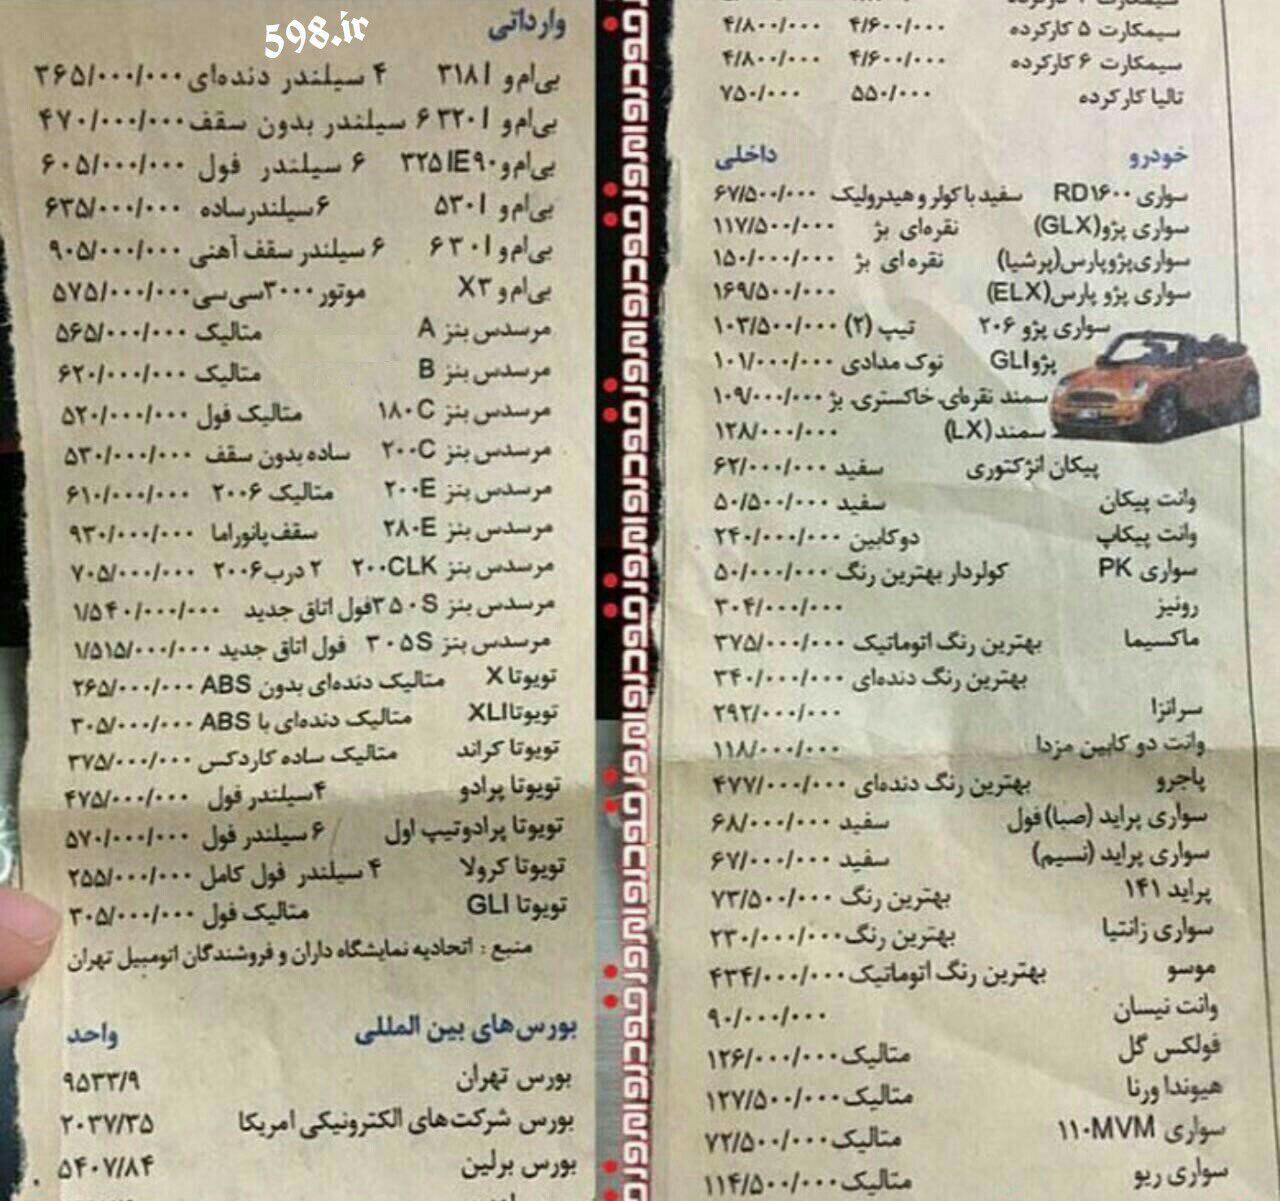 598.ir
سیمکارت ۵ کارکرده ۴/۶۰۰/۰۰۰ ۴/۸۰۰/۰۰۰
سیمکارت ۶ کارکرده ۴/۶۰۰/۰۰۰ ۴/۸۰۰/۰۰۰
تالیا کارکرده ۵۵۰/۰۰۰ ۷۵۰/۰۰۰
خودرو داخلی
سواری RD۱۶۰۰ سفید با کولر و هیدرولیک ۶۷/۵۰۰/۰۰۰
سواری پژو(GLX) نقره‌ای بژ ۱۱۷/۵۰۰/۰۰۰
سواری پژو پارس(پرشیا) نقره ای بژ ۱۵۰/۰۰۰/۰۰۰
سواری پژو پارس(ELX) ۱۶۹/۵۰۰/۰۰۰
سواری پژو ۲۰۶ تیپ (۲) ۱۰۳/۵۰۰/۰۰۰
پژو GLI نوک مدادی ۱۰۱/۰۰۰/۰۰۰
سمند نقره‌ای، خاکستری، بژ ۱۰۹/۰۰۰/۰۰۰
سمند(LX) ۱۲۸/۰۰۰/۰۰۰
پیکان انژکتوری سفید ۶۲/۰۰۰/۰۰۰
وانت پیکان سفید ۵۰/۵۰۰/۰۰۰
وانت پیکاپ دو کابین ۲۴۰/۰۰۰/۰۰۰
سواری PK کولردار بهترین رنگ ۵۰/۰۰۰/۰۰۰
رونیز ۳۰۴/۰۰۰/۰۰۰
ماکسیما بهترین رنگ اتوماتیک ۳۷۵/۰۰۰/۰۰۰
بهترین رنگ دنده‌ای ۳۴۰/۰۰۰/۰۰۰
سرانزا ۲۹۲/۰۰۰/۰۰۰
وانت دو کابین مزدا ۱۱۸/۰۰۰/۰۰۰
پاجرو بهترین رنگ دنده‌ای ۴۷۷/۰۰۰/۰۰۰
سواری پراید (صبا)فول سفید ۶۸/۰۰۰/۰۰۰
سواری پراید (نسیم) سفید ۶۷/۰۰۰/۰۰۰
پراید ۱۴۱ بهترین رنگ ۷۳/۵۰۰/۰۰۰
سواری زانتیا بهترین رنگ ۲۳۰/۰۰۰/۰۰۰
موسو بهترین رنگ اتوماتیک ۴۳۴/۰۰۰/۰۰۰
وانت نیسان ۹۰/۰۰۰/۰۰۰
فولکس گل متالیک ۱۲۶/۰۰۰/۰۰۰
هیوندا ورنا متالیک ۱۲۷/۵۰۰/۰۰۰
سواری ۱۱۰MVM متالیک ۷۲/۵۰۰/۰۰۰
سواری ریو متالیک ۱۱۴/۵۰۰/۰۰۰
وارداتی
بی‌ام‌و ۳۱۸I ۴ سیلندر دنده‌ای ۳۶۵/۰۰۰/۰۰۰
بی‌ام‌و ۳۲۰I ۶ سیلندر بدون سقف ۴۷۰/۰۰۰/۰۰۰
بی‌ام‌و ۳۲۵IE۹۰ ۶ سیلندر فول ۶۰۵/۰۰۰/۰۰۰
بی‌ام‌و ۵۳۰I ۶ سیلندر ساده ۶۳۵/۰۰۰/۰۰۰
بی‌ام‌و ۶۳۰I ۶ سیلندر سقف آهنی ۹۰۵/۰۰۰/۰۰۰
بی‌ام‌و X۳ موتور ۳۰۰۰سی‌سی ۵۷۵/۰۰۰/۰۰۰
مرسدس بنز A متالیک ۵۶۵/۰۰۰/۰۰۰
مرسدس بنز B متالیک ۶۲۰/۰۰۰/۰۰۰
مرسدس بنز ۱۸۰C متالیک فول ۵۲۰/۰۰۰/۰۰۰
مرسدس بنز ۲۰۰C ساده بدون سقف ۵۳۰/۰۰۰/۰۰۰
مرسدس بنز ۲۰۰E متالیک ۲۰۰۶ ۶۱۰/۰۰۰/۰۰۰
مرسدس بنز ۲۸۰E سقف پانوراما ۹۳۰/۰۰۰/۰۰۰
مرسدس بنز ۲۰۰CLK ۲ درب ۲۰۰۶ ۷۰۵/۰۰۰/۰۰۰
مرسدس بنز ۳۵۰S فول اتاق جدید ۱/۵۴۰/۰۰۰/۰۰۰
مرسدس بنز ۳۰۵S فول اتاق جدید ۱/۵۱۵/۰۰۰/۰۰۰
تویوتا X متالیک دنده‌ای بدون ABS ۲۶۵/۰۰۰/۰۰۰
تویوتا XLI متالیک دنده‌ای با ABS ۳۰۵/۰۰۰/۰۰۰
تویوتا کراند متالیک ساده کاردکس ۳۷۵/۰۰۰/۰۰۰
تویوتا پرادو ۴سیلندر فول ۴۷۵/۰۰۰/۰۰۰
تویوتا پرادوتیپ اول ۶ سیلندر فول ۵۷۰/۰۰۰/۰۰۰
تویوتا کرولا ۴ سیلندر فول کامل ۲۵۵/۰۰۰/۰۰۰
تویوتا GLI متالیک فول ۳۰۵/۰۰۰/۰۰۰
منبع : اتحادیه نمایشگاه داران و فروشندگان اتومبیل تهران
بورس‌های بین المللی واحد
بورس تهران ۹۵۳۳/۹
بورس شرکت‌های الکترونیکی امریکا ۲۰۳۷/۳۵
بورس برلین ۵۴۰۷/۸۴